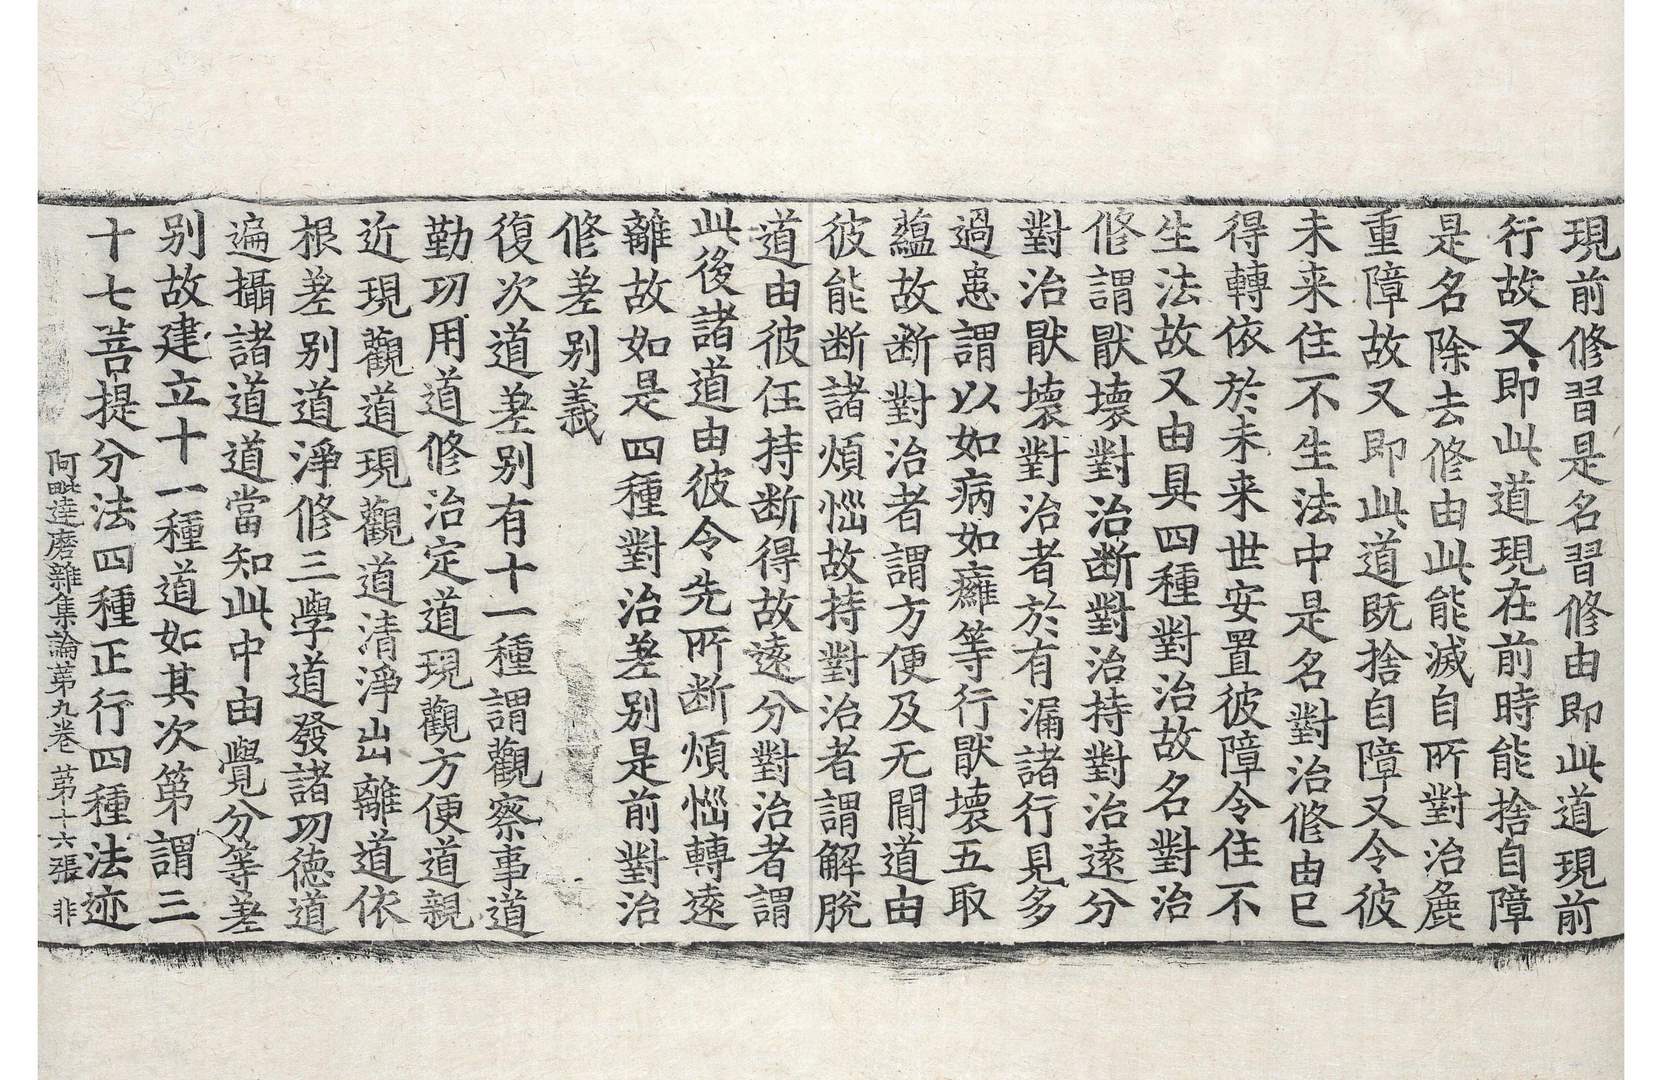 現前修習是名習修由即此道現前
行故又即此道現在前時能捨自障
是名除去修由此能滅自所對治麁
重障故又即此道既捨自障又令彼
未来住不生法中是名對治修由已
得轉依於未来世安置彼障令住不
生法故又由具四種對治故名對治
修謂猒壞對治断對治持對治遠分
對治猒壞對治者於有漏諸行見多
過患謂以如病如癰等行猒壞五取
蘊故断對治者謂方便及无間道由
彼能断諸煩惱故持對治者謂解脫
道由彼任持断得故遠分對治者謂
此後諸道由彼令先所断煩惱轉遠
離故如是四種對治差别是前對治
修差别義
復次道差别有十一種謂觀察事道
勤功用道修治定道現觀方便道親
近現觀道現觀道清淨出離道依
根差别道淨修三學道發諸功德道
遍攝諸道道當知此中由覺分等差
别故建立十一種道如其次第謂三
十七菩提分法四種正行四種法迹
阿毗達磨雜集論苐九卷 苐十六張 非